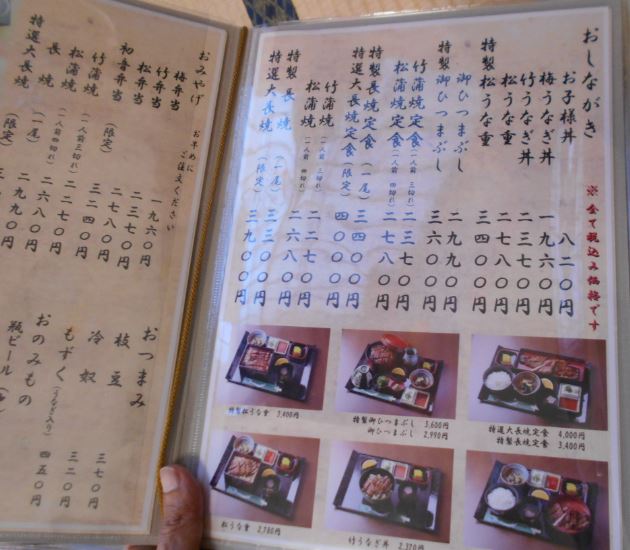 おしながき
※全て税込み価格です
お子様丼 八二〇円
梅うなぎ丼 一九六〇円
竹うなぎ丼 二三七〇円
松うな重 二七八〇円
特製松うな重 三四〇〇円
御ひつまぶし 二九九〇円
特製御ひつまぶし 三六〇〇円
竹蒲焼定食(一人前 三切れ) 二三七〇円
松蒲焼定食(一人前 四切れ) 二七八〇円
特製長焼定食(一尾) 三四〇〇円
特選大長焼定食(限定) 四〇〇〇円
竹蒲焼(一人前 三切れ) 二二七〇円
松蒲焼(一人前 四切れ) 二六八〇円
特製長焼(一尾) 三三〇〇円
特選大長焼(限定) 九〇〇円
特製松うな重 3,400円
特製御ひつまぶし 3,600円
御ひつまぶし 2,990円
特選大長焼定食 4,000円
特製長焼定食 3,400円
松うな重 2,780円
竹うなぎ丼 2,370円
おみやげ お早めにご注文ください
梅弁当 一九六〇円
竹弁当 二三七〇円
松弁当 二七八〇円
初音弁当(限定) 三二四〇円
竹蒲焼(一人前 三切れ) 二二七〇円
松蒲焼(一人前 四切れ) 二六八〇円
長焼(一尾) 二九九〇円
特選大長焼(限定)
おつまみ
枝豆 三七〇円
冷奴 三二〇円
もずく(うなぎ入り) 四五〇円
おのみもの
瓶ビール